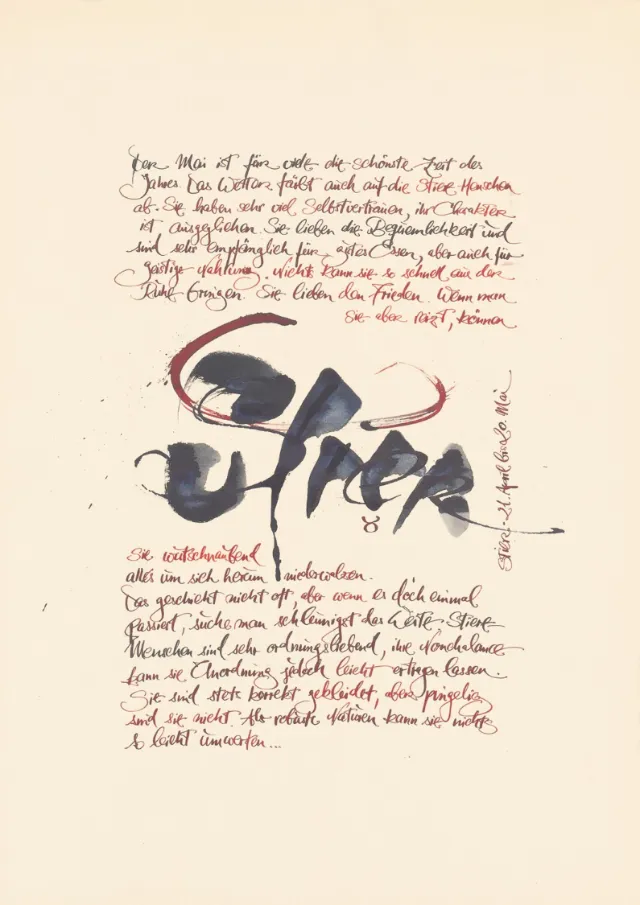 Der Mai ist für viele die schönste Zeit des
Jahres. Das Wetter färbt auch auf die Stier-Menschen
ab. Sie haben sehr viel Selbstvertrauen, ihr Charakter
ist ausgeglichen. Sie lieben die Bequemlichkeit und
sind sehr empfänglich für gutes Essen, aber auch für
geistige Nahrung. Nichts kann sie so schnell aus der
Ruhe bringen. Sie lieben den Frieden. Wenn man
sie aber reizt, können
Stier
♉
Stier - 21. April bis 20. Mai
Sie wutschnaubend
alles um sich herum niederwalzen.
Das geschieht nicht oft, aber wenn es doch einmal
passiert, suche man schleunigst das Weite. Stier-
Menschen sind sehr ordnungsliebend, ihre Nonchalance
kann sie Unordnung jedoch leicht ertragen lassen.
Sie sind stets korrekt gekleidet, aber pingelig
sind sie nicht. Als robuste Naturen kann sie nichts
so leicht umwerfen...